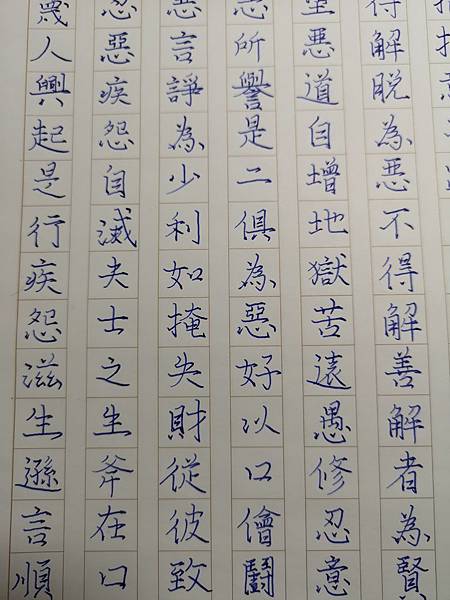 蔑人興起是行疾怨滋生遜言順
忍惡疾怨自滅夫士之生斧在口
惡言諍為少利如掩失財從彼致
惡所譽是二俱為惡好以口儈鬪
悪道自增地獄苦遠愚修忍意
得解脫為惡不得解善解者為賢